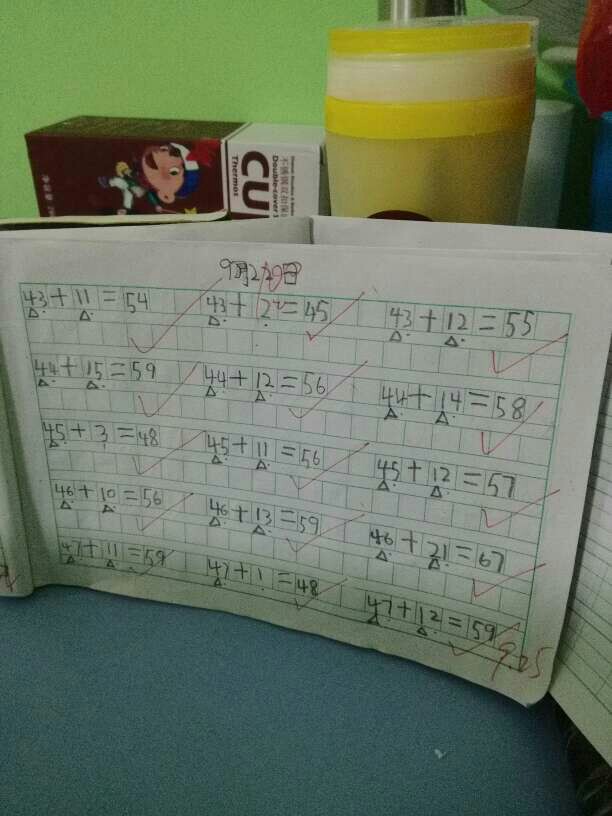 CU
Double-cover
Thermos
9月22日
43+11=54 43+2=45 43+12=55
44+15=59 44+12=56 44+14=58
45+3=48 45+11=56 45+12=57
46+10=56 46+13=59 46+21=67
47+11=59 47+1=48 47+12=59
9.25